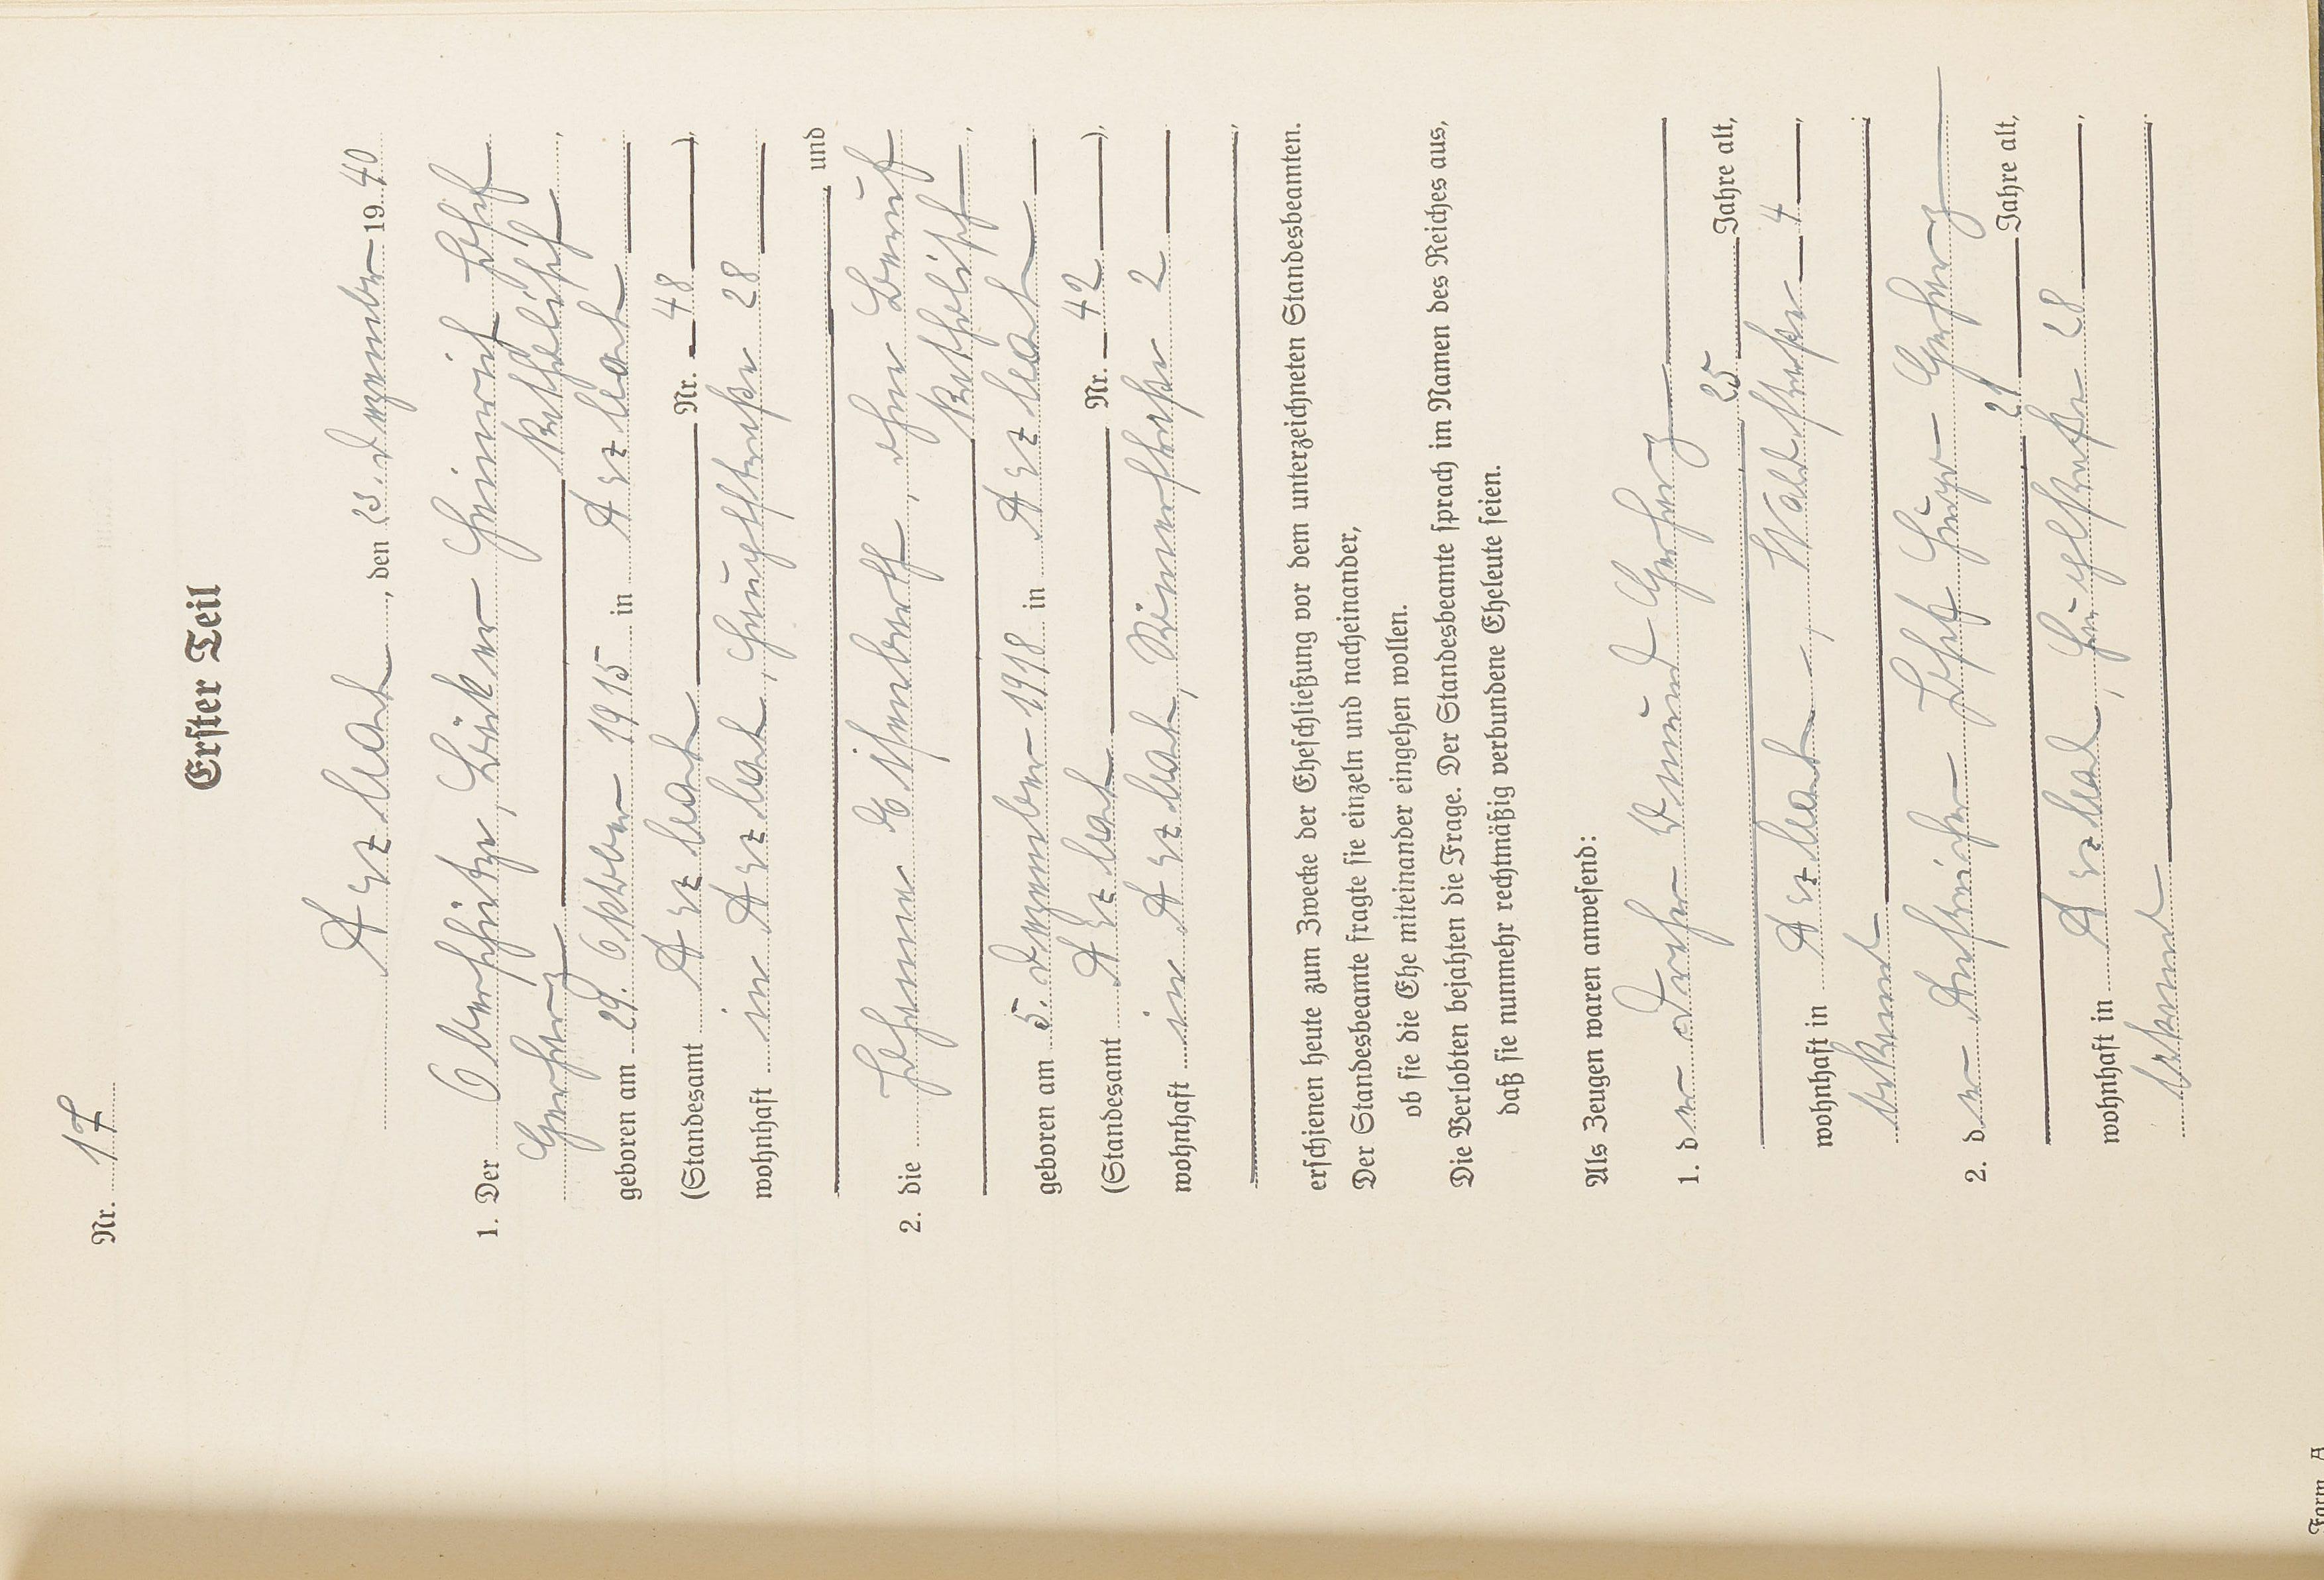 Nr. 17
Erster Teil
Arzbach, den 23. Dezember 1940
1. Der Oberschütze, Bäcker Heinrich Josef
Gerharz katholisch,
geboren am 29. Oktober 1915 in Arzbach
(Standesamt Arzbach Nr. 48),
wohnhaft in Arzbach, Hauptstraße 28
, und
2. die Johanna Eisenbarth, ohne Beruf
katholisch,
geboren am 5. Dezember 1918 in Arzbach
(Standesamt Arzbach Nr. 42),
wohnhaft in Arzbach, 2
erschienen heute zum Zwecke der Eheschließung vor dem unterzeichneten Standesbeamten.
Der Standesbeamte fragte sie einzeln und nacheinander,
ob sie die Ehe miteinander eingehen wollen.
Die Verlobten bejahten die Frage. Der Standesbeamte sprach im Namen des Reiches aus,
daß sie nunmehr rechtmäßig verbundene Eheleute seien.
Als Zeugen waren anwesend:
1. der Gerharz
25 Jahre alt,
wohnhaft in Arzbach, Waldstraße 4,
bekannt
2. der Anstreicher Josef Gerharz
21 Jahre alt,
wohnhaft in Arzbach, Hauptstraße 28,
bekannt
Form. A